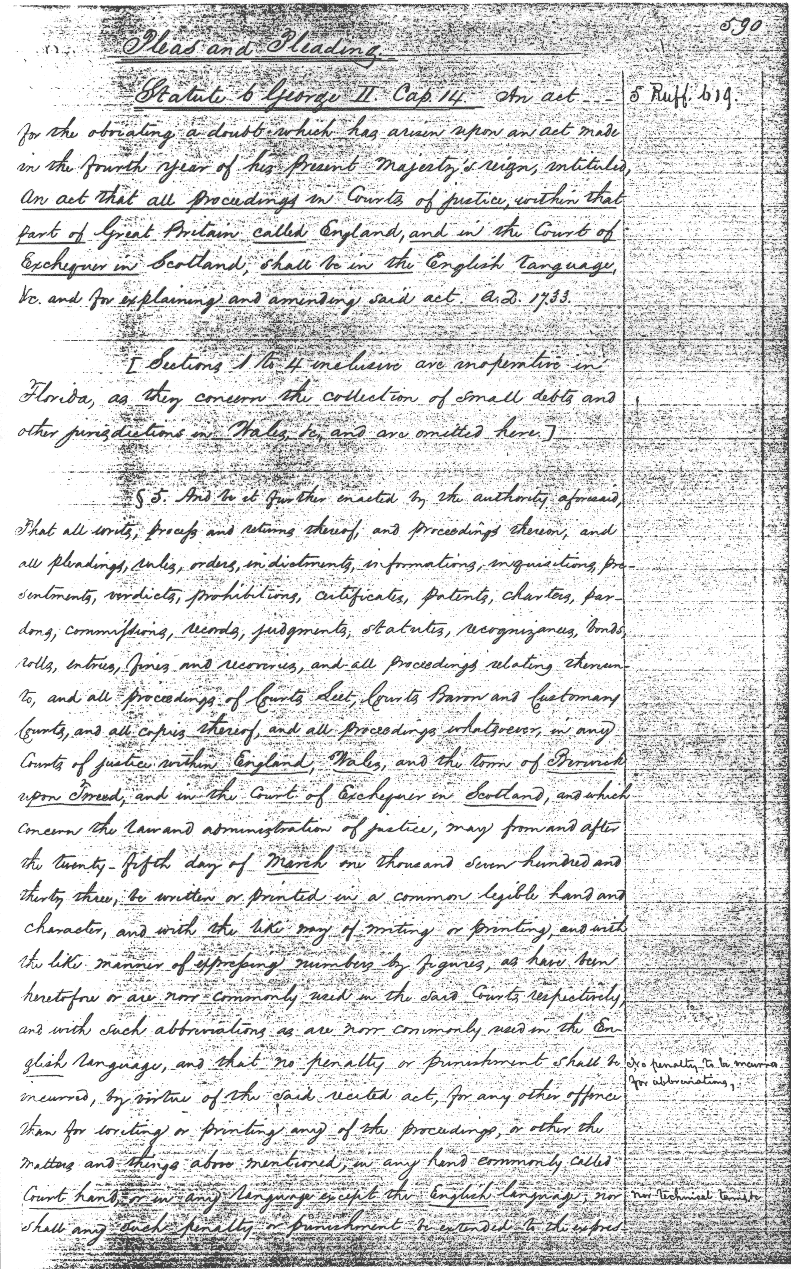 590
Pleas and Pleading
Statute 6 George II Cap. 14. An act --- 5 Ruff. 619.
for the obviating a doubt which has arisen upon an act made
in the fourth year of his present Majesty's reign, intituled,
An act that all proceedings in Courts of justice, within that
part of Great Britain called England, and in the Court of
Exchequer in Scotland, shall be in the English language,
&c. and for explaining and amending said act. A.D. 1733.
[Sections 1 to 4 inclusive are inoperative in
Florida, as they concern the collection of small debts and
other jurisdictions in Wales, &c, and are omitted here.]
§ 5. And be it further enacted by the authority aforesaid,
That all writs, process and returns thereof, and proceedings thereon, and
all pleadings, rules, orders, indictments, informations, inquisitions, pre-
sentments, verdicts, prohibitions, certificates, patents, charters, par-
dons, commissions, records, judgments, statutes, recognizances, bonds,
rolls, entries, fines and recoveries, and all proceedings relating thereun-
to, and all proceedings of Courts Leet, Courts Baron and Customary
Courts, and all copies thereof, and all proceedings whatsoever, in any
Courts of justice within England, Wales, and the town of Berwick
upon Tweed, and in the Court of Exchequer in Scotland, and which
concern the law and administration of justice, may from and after
the twenty-fifth day of March one thousand seven hundred and
thirty three, be written or printed in a common legible hand and
character, and with the like way of writing or printing, and with
the like manner of expressing numbers by figures, as have been
heretofore or are now commonly used in the said Courts respectively,
and with such abbreviations as are now commonly used in the En-
glish language, and that no penalty or punishment shall be
No penalty to be incurred
for abbreviations,
incurred, by virtue of the said recited act, for any other offence
than for writing or printing any of the proceedings, or other the
matters and things above mentioned, in any hand commonly called
Court hand, or in any language except the English language, nor
nor technical terms
shall any such penalty or punishment be extended to the expres